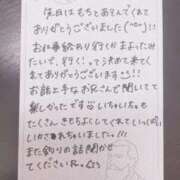 先日はももとあそんでくれて
ありがとうございました(^o^)!!
お仕事終わり行くかまよったみ
たいで、行く!って決めてくれて
ありがとうございます!!
お話上手なお兄さん聞いてて
楽しかったです いちゃいちゃも
たくさん きもちよくしてくれていっぱい
いかされちゃいました。///
また釣りの話聞かせ
てくださいね。